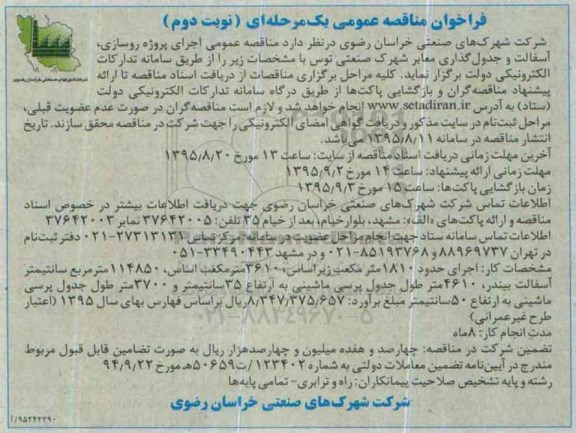 فراخوان مناقصه عمومی یک‌مرحله‌ای (نوبت دوم)
شرکت شهرک‌های صنعتی خراسان رضوی درنظر دارد مناقصه عمومی اجرای پروژه روسازی،
آسفالت و جدول‌گذاری معابر شهرک صنعتی توس با مشخصات زیر را از طریق سامانه تدارکات
الکترونیکی دولت برگزار نماید. کلیه مراحل برگزاری مناقصات از دریافت اسناد مناقصه تا ارائه
پیشنهاد مناقصه‌گران و بازگشایی پاکت‌ها از طریق درگاه سامانه تدارکات الکترونیکی دولت
(ستاد) به آدرس www.setadiran.ir انجام خواهد شد و لازم است مناقصه‌گران در صورت عدم عضویت قبلی،
مراحل ثبت‌نام در سایت مذکور و دریافت گواهی امضای الکترونیکی را جهت شرکت در مناقصه محقق سازند. تاریخ
انتشار مناقصه در سامانه ۱۳۹۵/۸/۱۱ می‌باشد.
آخرین مهلت زمانی دریافت اسناد مناقصه از سایت: ساعت ۱۳ مورخ ۱۳۹۵/۸/۲۰
مهلت زمانی ارائه پیشنهاد: ساعت ۱۴ مورخ ۱۳۹۵/۹/۲
زمان بازگشایی پاکت‌ها: ساعت ۱۵ مورخ ۱۳۹۵/۹/۳
اطلاعات تماس شرکت شهرک‌های صنعتی خراسان رضوی جهت دریافت اطلاعات بیشتر در خصوص اسناد
مناقصه و ارائه پاکت‌های «الف»: مشهد، بلوار خیام، بعد از خیام ۳۵ تلفن: ۳۷۶۴۲۰۰۵ نمابر ۳۷۶۴۲۰۰۳
اطلاعات تماس سامانه ستاد جهت انجام مراحل عضویت در سامانه: مرکز تماس ۲۷۳۱۳۱۳۱-۰۲۱ دفتر ثبت‌نام
در تهران ۸۸۹۶۹۷۳۷ و ۸۵۱۹۳۷۶۸-۰۲۱ و در مشهد ۳۳۴۹۰۴۴۳-۰۵۱
مشخصات کار: اجرای حدود ۱۸۱۰ متر مکعب زیراساس، ۳۶۱۰ مترمکعب اساس، ۱۱۴۸۵۰ مترمربع سانتیمتر
آسفالت بیندر، ۴۶۱۰ متر طول جدول پرسی ماشینی به ارتفاع ۳۵ سانتیمتر و ۳۷۰۰ متر طول جدول پرسی
ماشینی به ارتفاع ۵۰ سانتیمتر مبلغ برآورد: ۸/۳۴۷/۳۷۵/۶۵۷ ریال براساس فهارس بهای سال ۱۳۹۵ (اعتبار
طرح غیرعمرانی)
مدت انجام کار: ۸ ماه
تضمین شرکت در مناقصه: چهارصد و هفده میلیون و چهارصدهزار ریال به صورت تضامین قابل قبول مربوط
مندرج در آیین‌نامه تضمین معاملات دولتی به شماره ۱۲۳۴۰۲/ت۵۰۶۵۹هـ مورخ ۹۴/۹/۲۲
رشته و پایه تشخیص صلاحیت پیمانکاران: راه و ترابری- تمامی پایه‌ها
شرکت شهرک‌های صنعتی خراسان رضوی